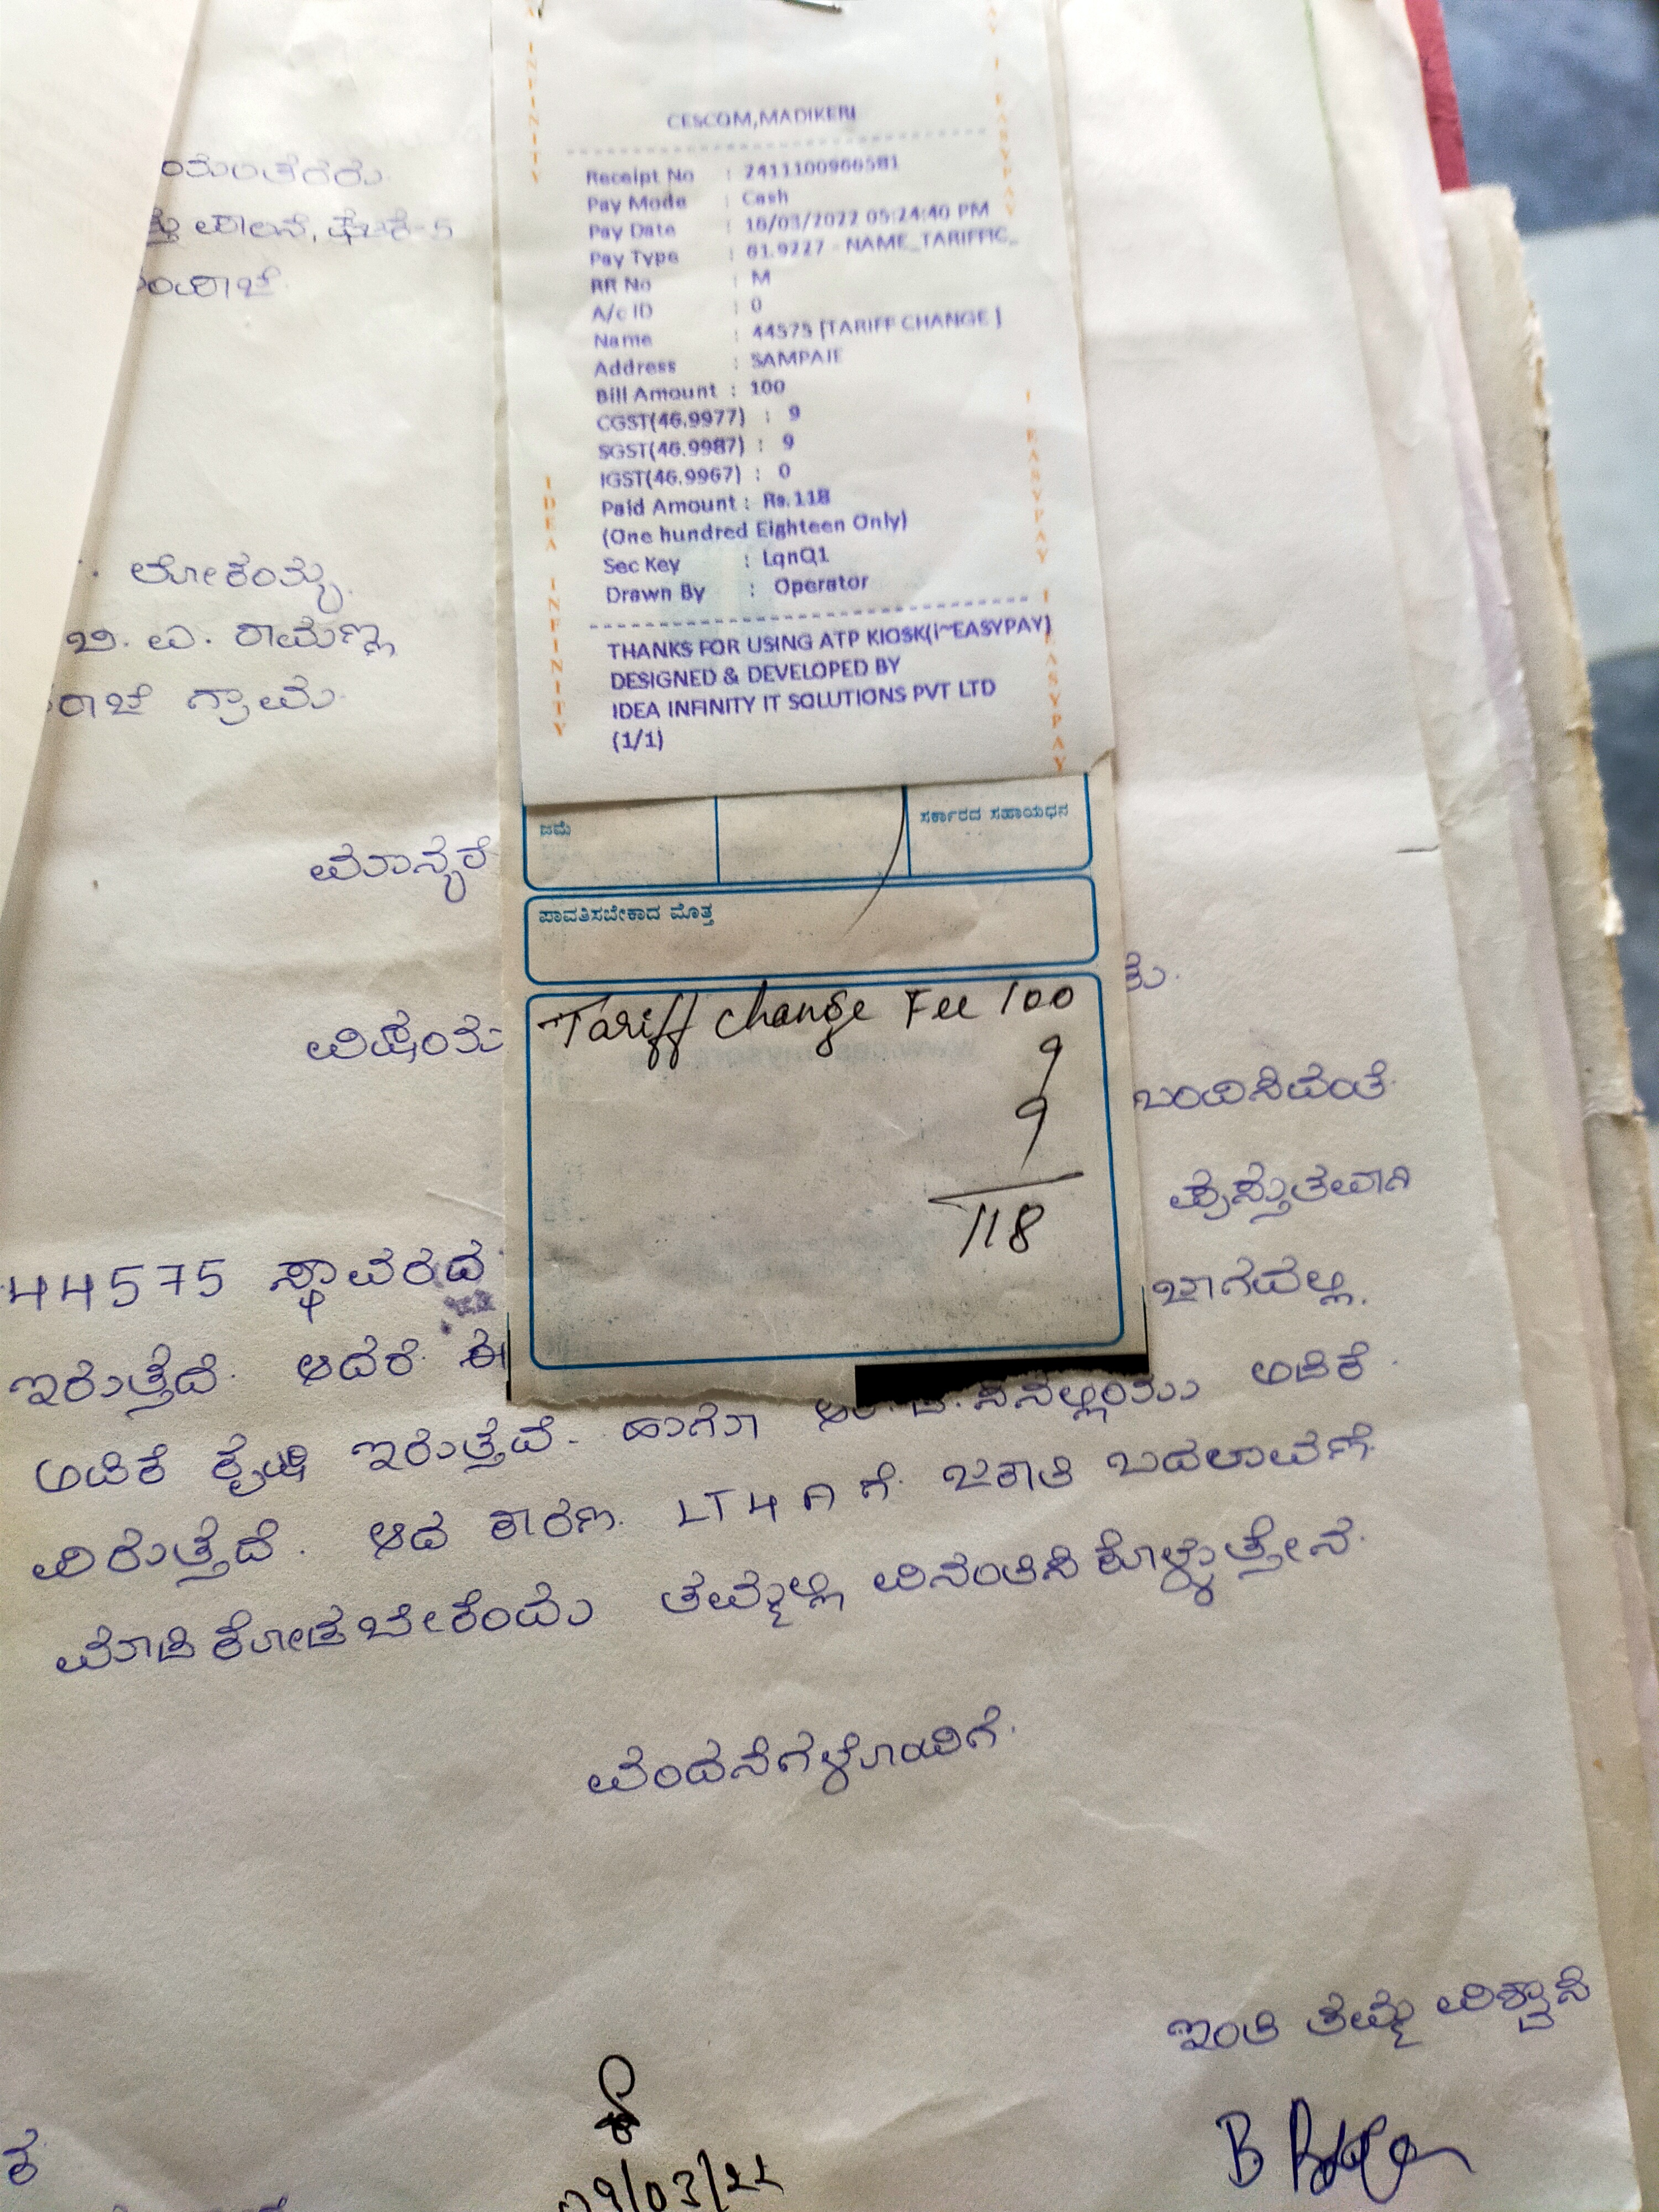 CESCOM,MADIKERI
Receipt No : 2411100966581
Pay Mode : Cash
Pay Date : 16/03/2022 05:24:40 PM
Pay Type : 61.9227 - NAME_TARIFFIC_
RR No : M
A/c ID : 0
Name : 44575 [TARIFF CHANGE ]
Address : SAMPAJE
Bill Amount : 100
CGST(46.9977) : 9
SGST(46.9987) : 9
IGST(46.9967) : 0
Paid Amount : Rs.118
(One hundred Eighteen Only)
Sec Key : LqnQ1
Drawn By : Operator
THANKS FOR USING ATP KIOSK(I~EASYPAY)
DESIGNED & DEVELOPED BY
IDEA INFINITY IT SOLUTIONS PVT LTD
(1/1)
IDEA INFINITY
EASYPAY
ಜಮೆ
ಸರ್ಕಾರದ ಸಹಾಯಧನ
ಪಾವತಿಸಬೇಕಾದ ಮೊತ್ತ
Tariff change Fee 100
9
9
118
ಲೋಕಯ್ಯ
ಬಿ. ಎ. ರಾಮಣ್ಣ
ರಾಜೆ ಗ್ರಾಮ
ಮಾನ್ಯರೆ
ವಿಷಯ
ಬಂದಿಸಿದಂತೆ
ಪ್ರಸ್ತುತವಾಗಿ
44575 ಸ್ಥಾವರದ ಜಾಗದಲ್ಲಿ
ಇರುತ್ತದೆ. ಆದರೆ ಈ ಅಡಿಕೆ
ಅಡಿಕೆ ಕೃಷಿ ಇರುತ್ತದೆ. ಹಾಗೂ
ವಿರುತ್ತದೆ. ಆದ ಕಾರಣ LT4A ಗೆ ಜಕಾತಿ ಬದಲಾವಣೆ
ಮಾಡಿಕೊಡಬೇಕೆಂದು ತಮ್ಮಲ್ಲಿ ವಿನಂತಿಸಿಕೊಳ್ಳುತ್ತೇನೆ.
ವಂದನೆಗಳೊಂದಿಗೆ
ಇಂತಿ ತಮ್ಮ ವಿಶ್ವಾಸಿ
09/03/22